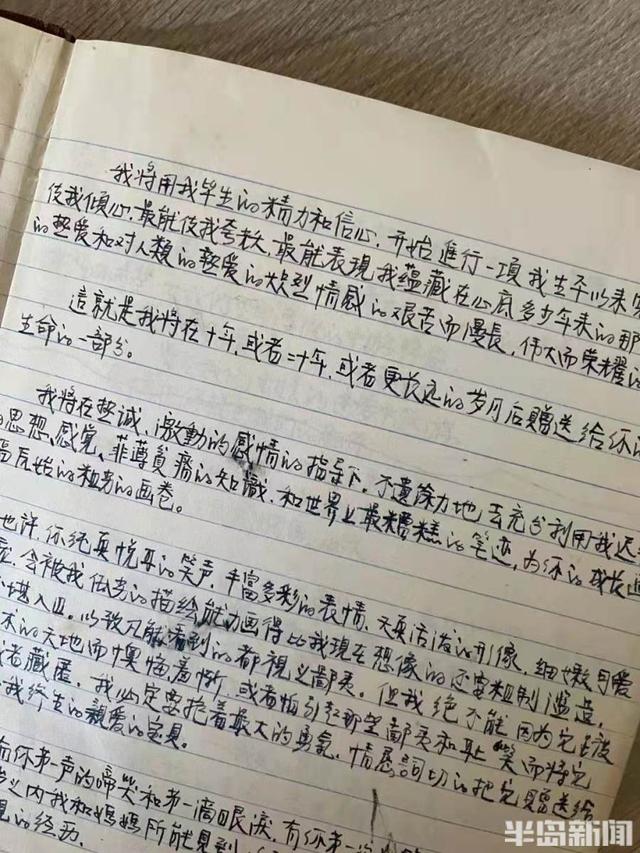 我将用我毕生的精力和信心,开始進行一項我生平以来
使我傾心,最能使我夸耀,最能表現我蕴藏在心底多少年来的那
的热爱和对人類的热爱的炽烈情感的艰苦而漫長,伟大而荣耀
這就是我将在十年,或者二十年,或者更长远的岁月后贈送给你
生命的一部分。
我将在热誠、激動的感情的指导下,不遺馀力地去充分利用我
思想、感觉、菲薄貧瘠的知識,和世界上最糟糕的笔迹,为你的成长
原始的粗劣的画卷。
也许,你纯真悦耳的笑声,丰富多彩的表情,天真活泼的形像,細嫩可爱
会被我低劣的描绘能力画得比我現在想像的还要粗制濫造,
堪入目。以致只能看到的都视之鄙类。但我绝不能因为它被
术的天地而懊悔羞惭,或者怕引起那望鄙夷和耻笑而将它
者藏匿。我必定要抱着最大的勇氣,情恳詞切的把它贈送给
我终生的親爱的宝貝。
你第一声的啼笑和第一滴眼淚,有你第一次
以内我和妈妈所能見到
的经历.
半岛新闻